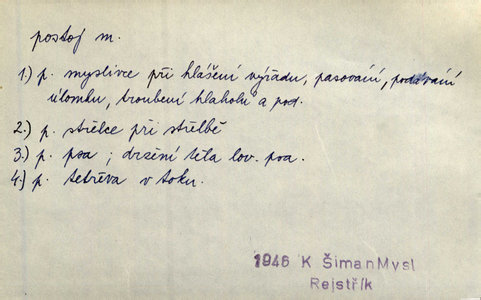 postoj m.
1.) p. myslivce při hlášení výřadu, pasování, podávání
úlomku, troubení hlaholu a pod.
2.) p. střelce při střelbě
3.) p. psa ; držení těla lov. psa.
4.) p. tetřeva v toku.
1946 K ŠimanMysl
Rejstřík